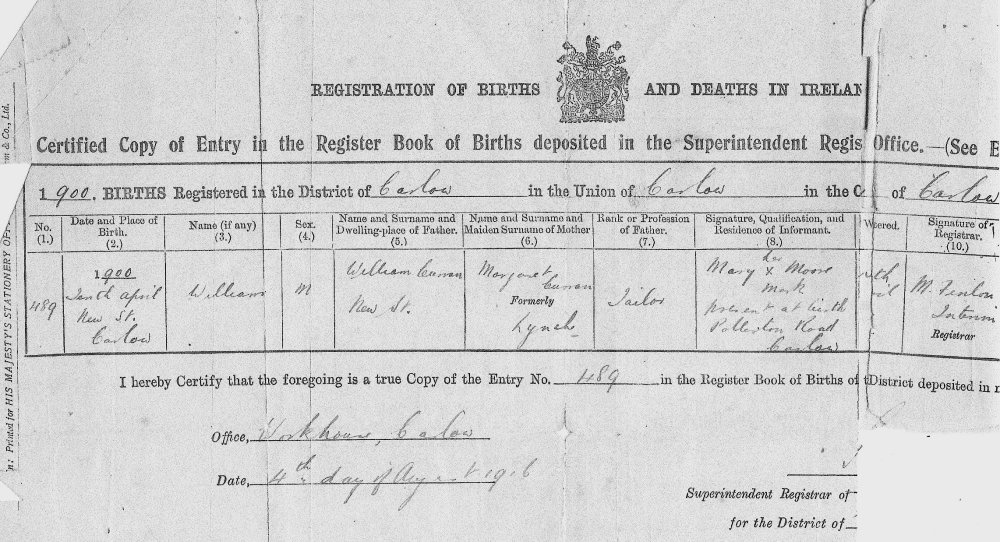 REGISTRATION OF BIRTHS AND DEATHS IN IRELAN
Certified Copy of Entry in the Register Book of Births deposited in the Superintendent Regis Office.—(See E
1900. BIRTHS Registered in the District of Carlow in the Union of Carlow in the C of Carlow
No. (1.)
Date and Place of Birth. (2.)
Name (if any) (3.)
Sex. (4.)
Name and Surname and Dwelling-place of Father. (5.)
Name and Surname and Maiden Surname of Mother (6.)
Rank or Profession of Father. (7.)
Signature, Qualification, and Residence of Informant. (8.)
tered.
Signature of Registrar. (10.)
489
1900
Tenth April
New St.
Carlow
William
M
William Curran
New St.
Margaret
Curran
Formerly
Lynch
Tailor
Mary her x Moore
mark
present at birth
Pollerton Road
Carlow
M. Fenlon
Interim
Registrar
I hereby Certify that the foregoing is a true Copy of the Entry No. 489 in the Register Book of Births of t District deposited in
Office, Workhouse, Carlow
Date, 4th day of August 1916
Superintendent Registrar of
for the District of
m & Co., Ltd.
n: Printed for HIS MAJESTY'S STATIONERY OF